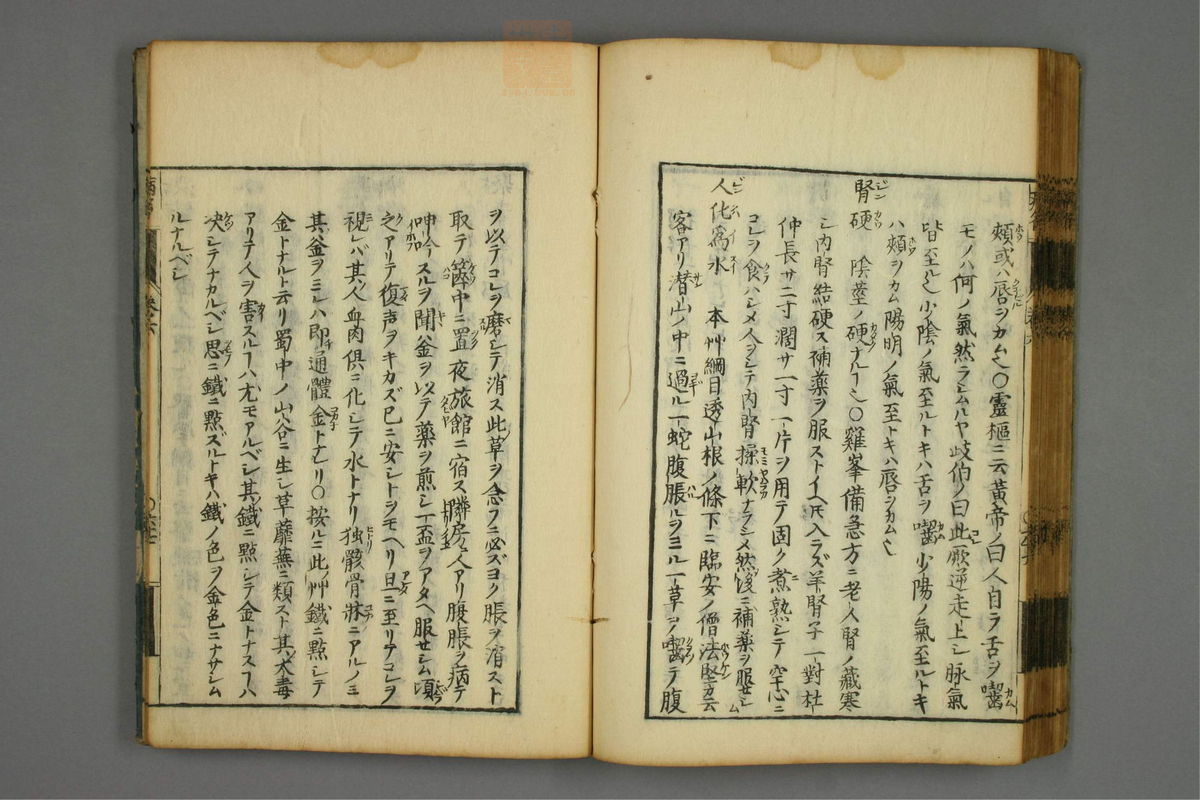 頬或ハ唇ヲカム也○靈樞ニ云黄帝ノ曰人自ラ舌ヲ嚙
モノハ何ノ氣然ラシムルヤ歧伯ノ曰此厥逆走上シ脉氣
皆至也少陰ノ氣至ルトキハ舌ヲ嚙少陽ノ氣至ルトキ
ハ頬ヲカム陽明ノ氣至トキハ唇ヲカム也
腎硬 陰莖ノ硬ナルヿ也○雞峯備急方ニ老人腎ノ藏寒
シ内腎結硬ス補薬ヲ服ストイヘ𪜈入ラズ羊腎子一對杜
仲長サ二寸濶サ一寸一片ヲ用テ固ク煮熟シテ空心ニ
コレヲ食ハシメ人ヲシテ内腎揉軟ナラシメ然後ニ補薬ヲ服セシム
人化為水 本艸綱目透山根ノ條下ニ臨安ノ僧法堅カ云
客アリ潜山ノ中ニ過ル一蛇腹脹ルヲミル一草ヲ嚙テ腹
ヲ以テコレヲ磨シテ消ス此草ヲ念フニ必ズヨク脹ヲ消スト
取テ篋中ニ置一夜旅館ニ宿ス隣房ニ人アリ腹脹ヲ病テ
呻吟スルヲ聞釜ヲ以テ薬ヲ煎シ一盃ヲアタヘ服セシム頃
之アリテ復声ヲキカズ已ニ安シトヲモヘリ旦ニ至リテコレヲ
視レバ其人血肉倶ニ化シテ水トナリ独骸骨牀ニアルノミ
其釜ヲミレハ即通體金トナレリ○按ルニ此艸鐵ニ點シテ
金トナルト云リ蜀中ノ山谷ニ生シ草蘼蕪ニ類ス其大毒
アリテ人ヲ害スルヿハ尤モアルベシ其鐵ニ點シテ金トナスヿハ
决シテナカルベシ思ニ鐵ニ點ズルトキハ鐵ノ色ヲ金色ニナサシム
ルナルベシ